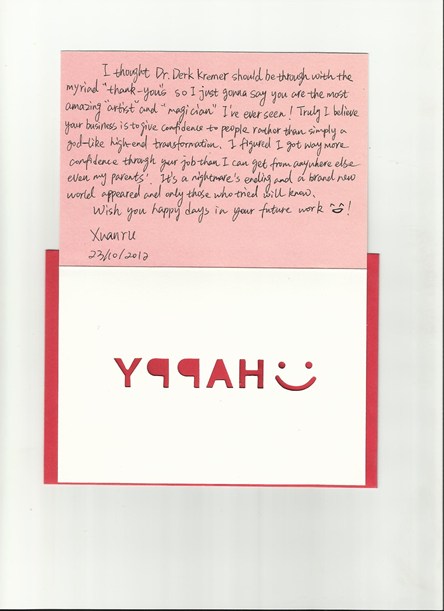 I thought Dr. Derk Kremer should be through with the
myriad "thank-you"s so I just gonna say you are the most
amazing "artist" and "magician" I've ever seen! Truly I believe
your business is to give confidence to people rather than simply a
god-like high-end transformation. I figured I got way more
confidence through your job than I can get from anywhere else
even my parents'. It's a nightmare's ending and a brand new
world appeared and only those who tried will know.
Wish you happy days in your future work !
Xuanru
23/10/2012
HAPPY